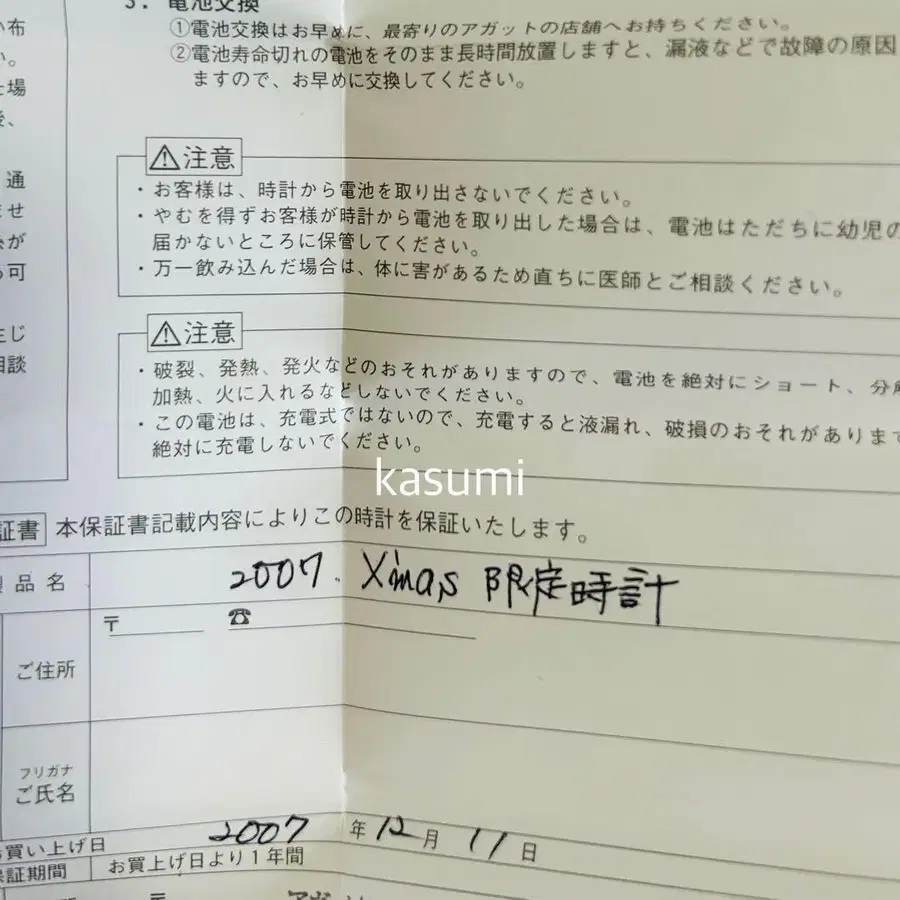 3. 電池交換
①電池交換はお早めに、最寄りのアガットの店舗へお持ちください。
②電池寿命切れの電池をそのまま長時間放置しますと、漏液などで故障の原因
ますので、お早めに交換してください。
い布
い。
場
後、
通
ませ
が
可
生じ
相談
⚠注意
・お客様は、時計から電池を取り出さないでください。
・やむを得ずお客様が時計から電池を取り出した場合は、電池はただちに幼児の
届かないところに保管してください。
・万一飲み込んだ場合は、体に害があるため直ちに医師とご相談ください。
⚠注意
・破裂、発熱、発火などのおそれがありますので、電池を絶対にショート、分解
加熱、火に入れるなどしないでください。
・この電池は、充電式ではないので、充電すると液漏れ、破損のおそれがあります
絶対に充電しないでください。
kasumi
証書 本保証書記載内容によりこの時計を保証いたします。
製品名 2007. X'mas 限定時計
ご住所 〒 ☎
フリガナ
ご氏名
お買い上げ日 2007 年 12 月 11 日
保証期間 お買上げ日より1年間
〒